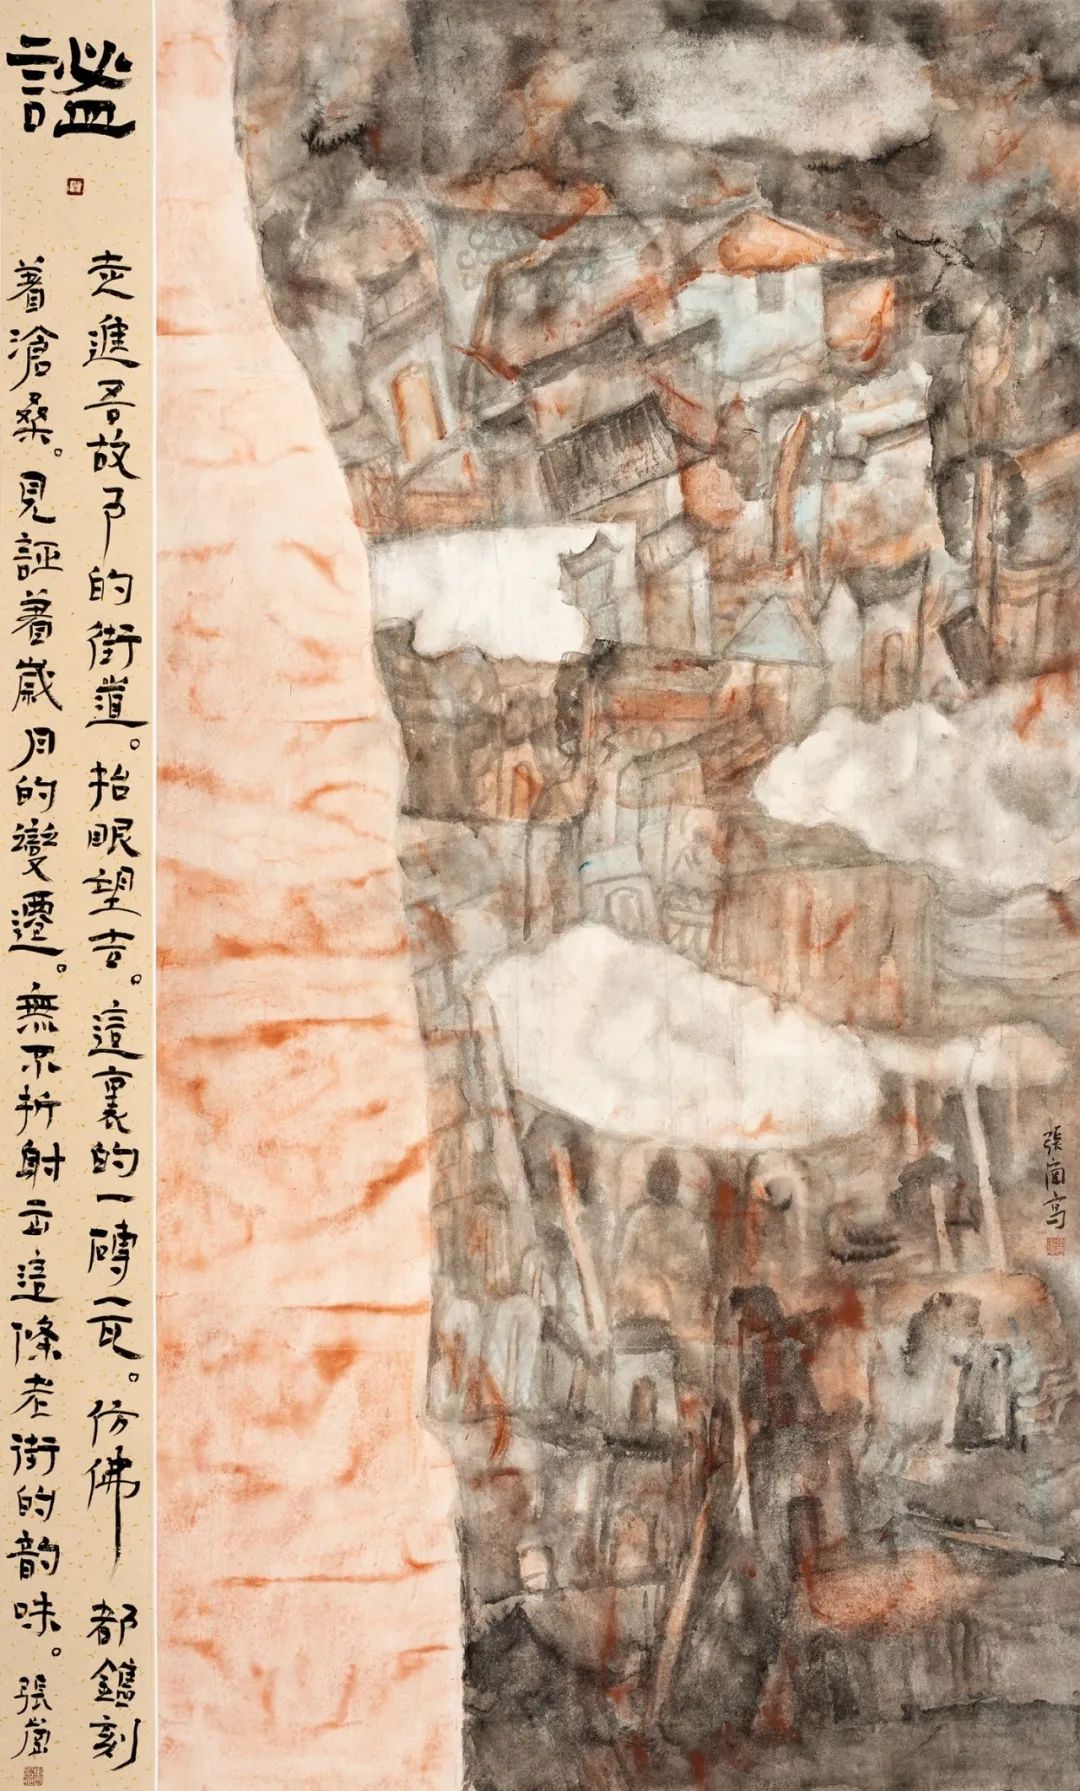 謐
走進吾故乡的街道。抬眼望去。這裏的一磚一瓦。仿佛都鐫刻
著滄桑。見証著歲月的變遷。無不折射出這條老街的韵味。張
張